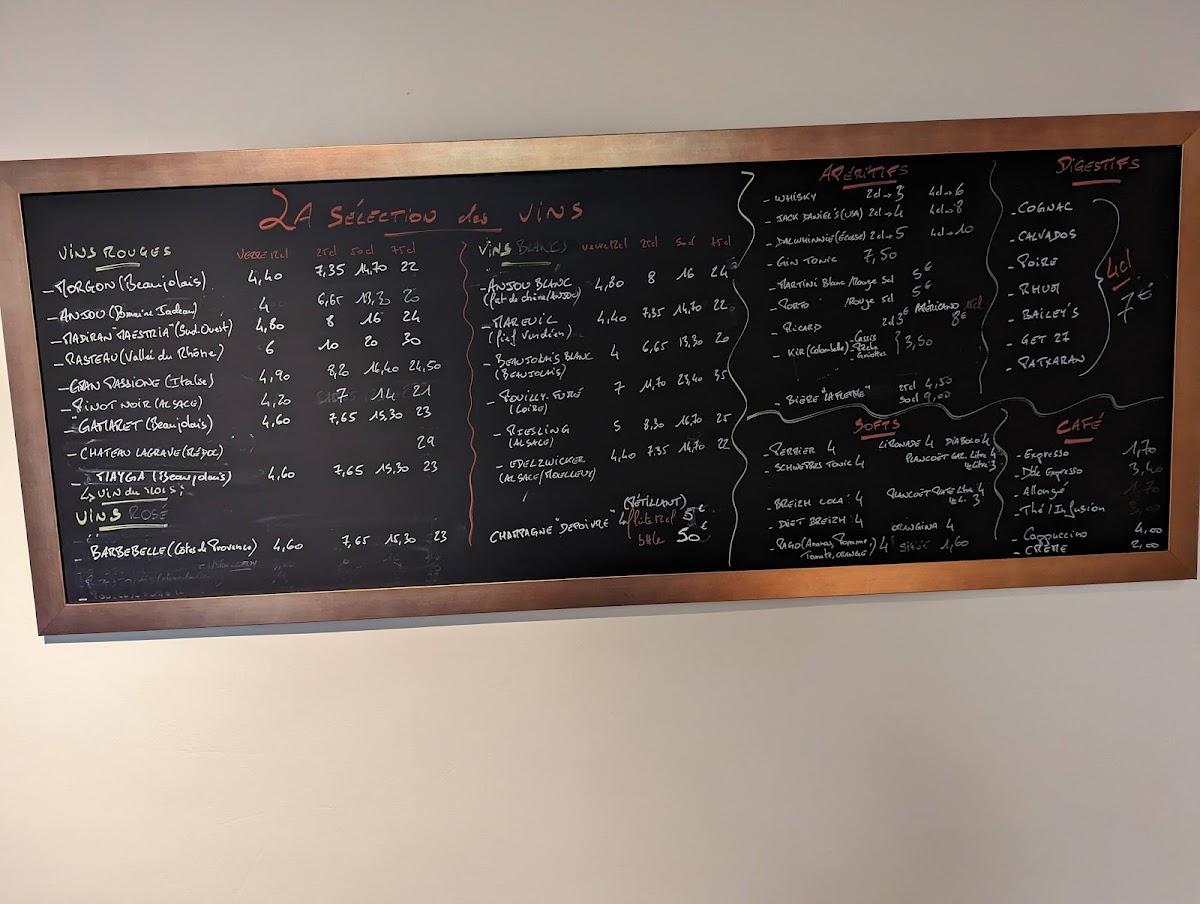 LA SÉLECTION des VINS
VINS ROUGES VERRE 12cl 25cl 50cl 75cl
- MORGON (Beaujolais) 4,40 7,35 14,70 22
- ANJOU 4 6,65 13,3 20
- MADIRAN "MAESTRIA" (Sud-Ouest) 4,80 8 16 24
- RASTEAU (Vallée du Rhône) 6 10 20 30
- GRAN PASSIONE (Italie) 4,90 8,20 16,40 24,50
- PINOT NOIR (ALSACE) 4,20 7 14 21
- "GAMARET" (Beaujolais) 4,60 7,65 15,30 23
- CHATEAU LAGRAVE (MÉDOC) 29
- "MAYGA" (Beaujolais) 4,60 7,65 15,30 23
↳ VIN du MOIS!
VINS ROSÉ
- BARBEBELLE (Côtes de Provence) 4,60 7,65 15,30 23
VINS BLANCS verre 12cl 25cl 50cl 75cl
- ANJOU BLANC 4,80 8 16 24
(ANJOU)
- MAREUIL 4,40 7,35 14,70 22
(Fief Vendéen)
- BEAUJOLAIS BLANC 4 6,65 13,30 20
(BEAUJOLAIS)
- POUILLY-FUMÉ 7 11,70 23,40 35
(LOIRE)
- RIESLING 5 8,30 16,70 25
(ALSACE)
- EDELZWICKER 4,40 7,35 14,70 22
(ALSACE/MOELLEUX)
(PÉTILLANT)
CHAMPAGNE "DEPOIVRE" flûte 12cl 5€
btlle 50€
APÉRITIFS
- WHISKY 2cl → 3 4cl → 6
- JACK DANIEL'S (USA) 2cl → 4 4cl → 8
- DALWHINNIE (Écosse) 2cl → 5 4cl → 10
- GIN TONIC 7,50
- MARTINI Blanc/Rouge 5cl 5€
- PORTO Rouge 5cl 5€
- RICARD 2cl 3€ AMÉRICANO 8€
- KIR (Colombelle) Cassis Pêche Griottes 3,50
- BIÈRE "LA FLEURE" 25cl 4,50
50cl 9,00
DIGESTIFS
- COGNAC
- CALVADOS
- POIRE
- RHUM
- BAILEY'S
- GET 27
- PATXARAN
4cl
7€
SOFTS
- PERRIER 4 LIMONADE 4 DIABOLO 4
- SCHWEPPES TONIC 4 PLANCOËT GAZ. Litre 4
1/2 L. 3
- BREIZH COLA 4 PLANCOËT PLATE Litre 4
1/2 L. 3
- DIET BREIZH 4 ORANGINA 4
- PAGO (Ananas, Pomme, Tomate, ORANGE) 4 SIROP 1,60
CAFÉ
- Expresso 1,70
- Dble Expresso 3,40
- Allongé 1,70
- Thé/Infusion 3,00
- Cappuccino 4,00
- CRÈME 2,00